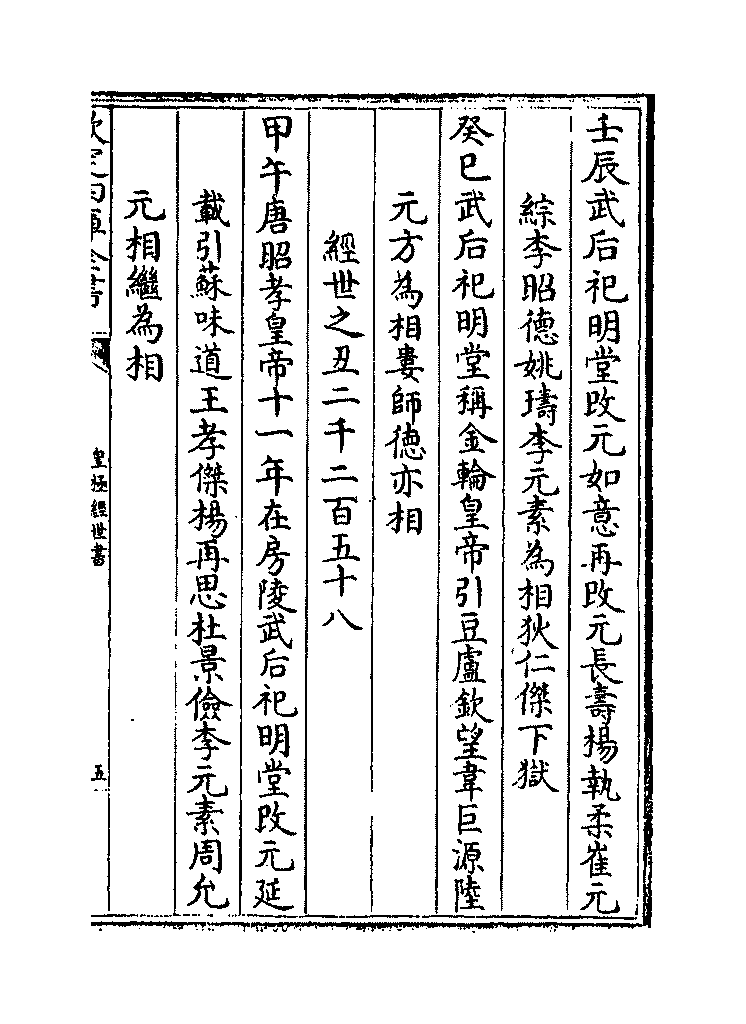 壬辰武后祀明堂改元如意再改元長壽楊執柔崔元
綜李昭德姚璹李元素為相狄仁傑下獄
癸巳武后祀明堂稱金輪皇帝引豆盧欽望韋巨源陸
元方為相婁師德亦相
經世之丑二千二百五十八
甲午唐昭孝皇帝十一年在房陵武后祀明堂改元延
載引蘇味道王孝傑楊再思杜景儉李元素周允
元相繼為相
欽定四庫全書
皇極經世書
五